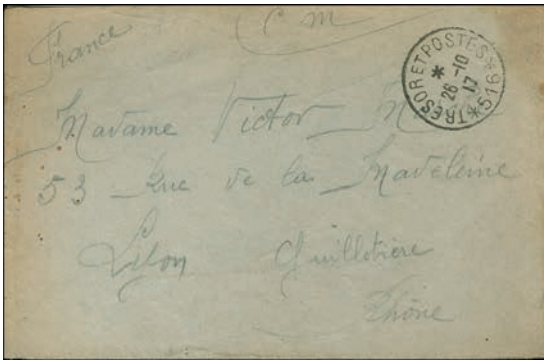 France
C M
TRESOR ET POSTES * 516 *
*
26 -10
17
Madame Victor
53 Rue de la Madeleine
Lyon Guillotière
Rhône